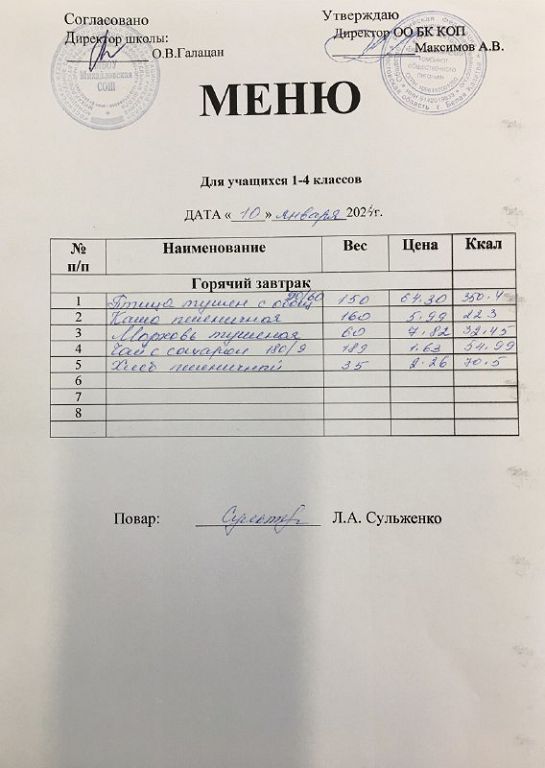 Согласовано
Директор школы:
О.В.Галацан
Утверждаю
Директор ОО БК КОП
Максимов А.В.
Михайловская
СОШ
общественного
питания
МЕНЮ
Для учащихся 1-4 классов
ДАТА « 10 » января 2024г.
№ п/п Наименование Вес Цена Ккал
Горячий завтрак
1 Птица тушен с 90/60 150 64.30 350.4
2 Каша пшеничная 160 5.99 223
3 Морковь тушеная 60 7.82 32.45
4 Чай с сахаром 180/9 189 1.63 54.99
5 Хлеб пшеничный 35 2.26 70.5
6
7
8
Повар: Л.А. Сульженко